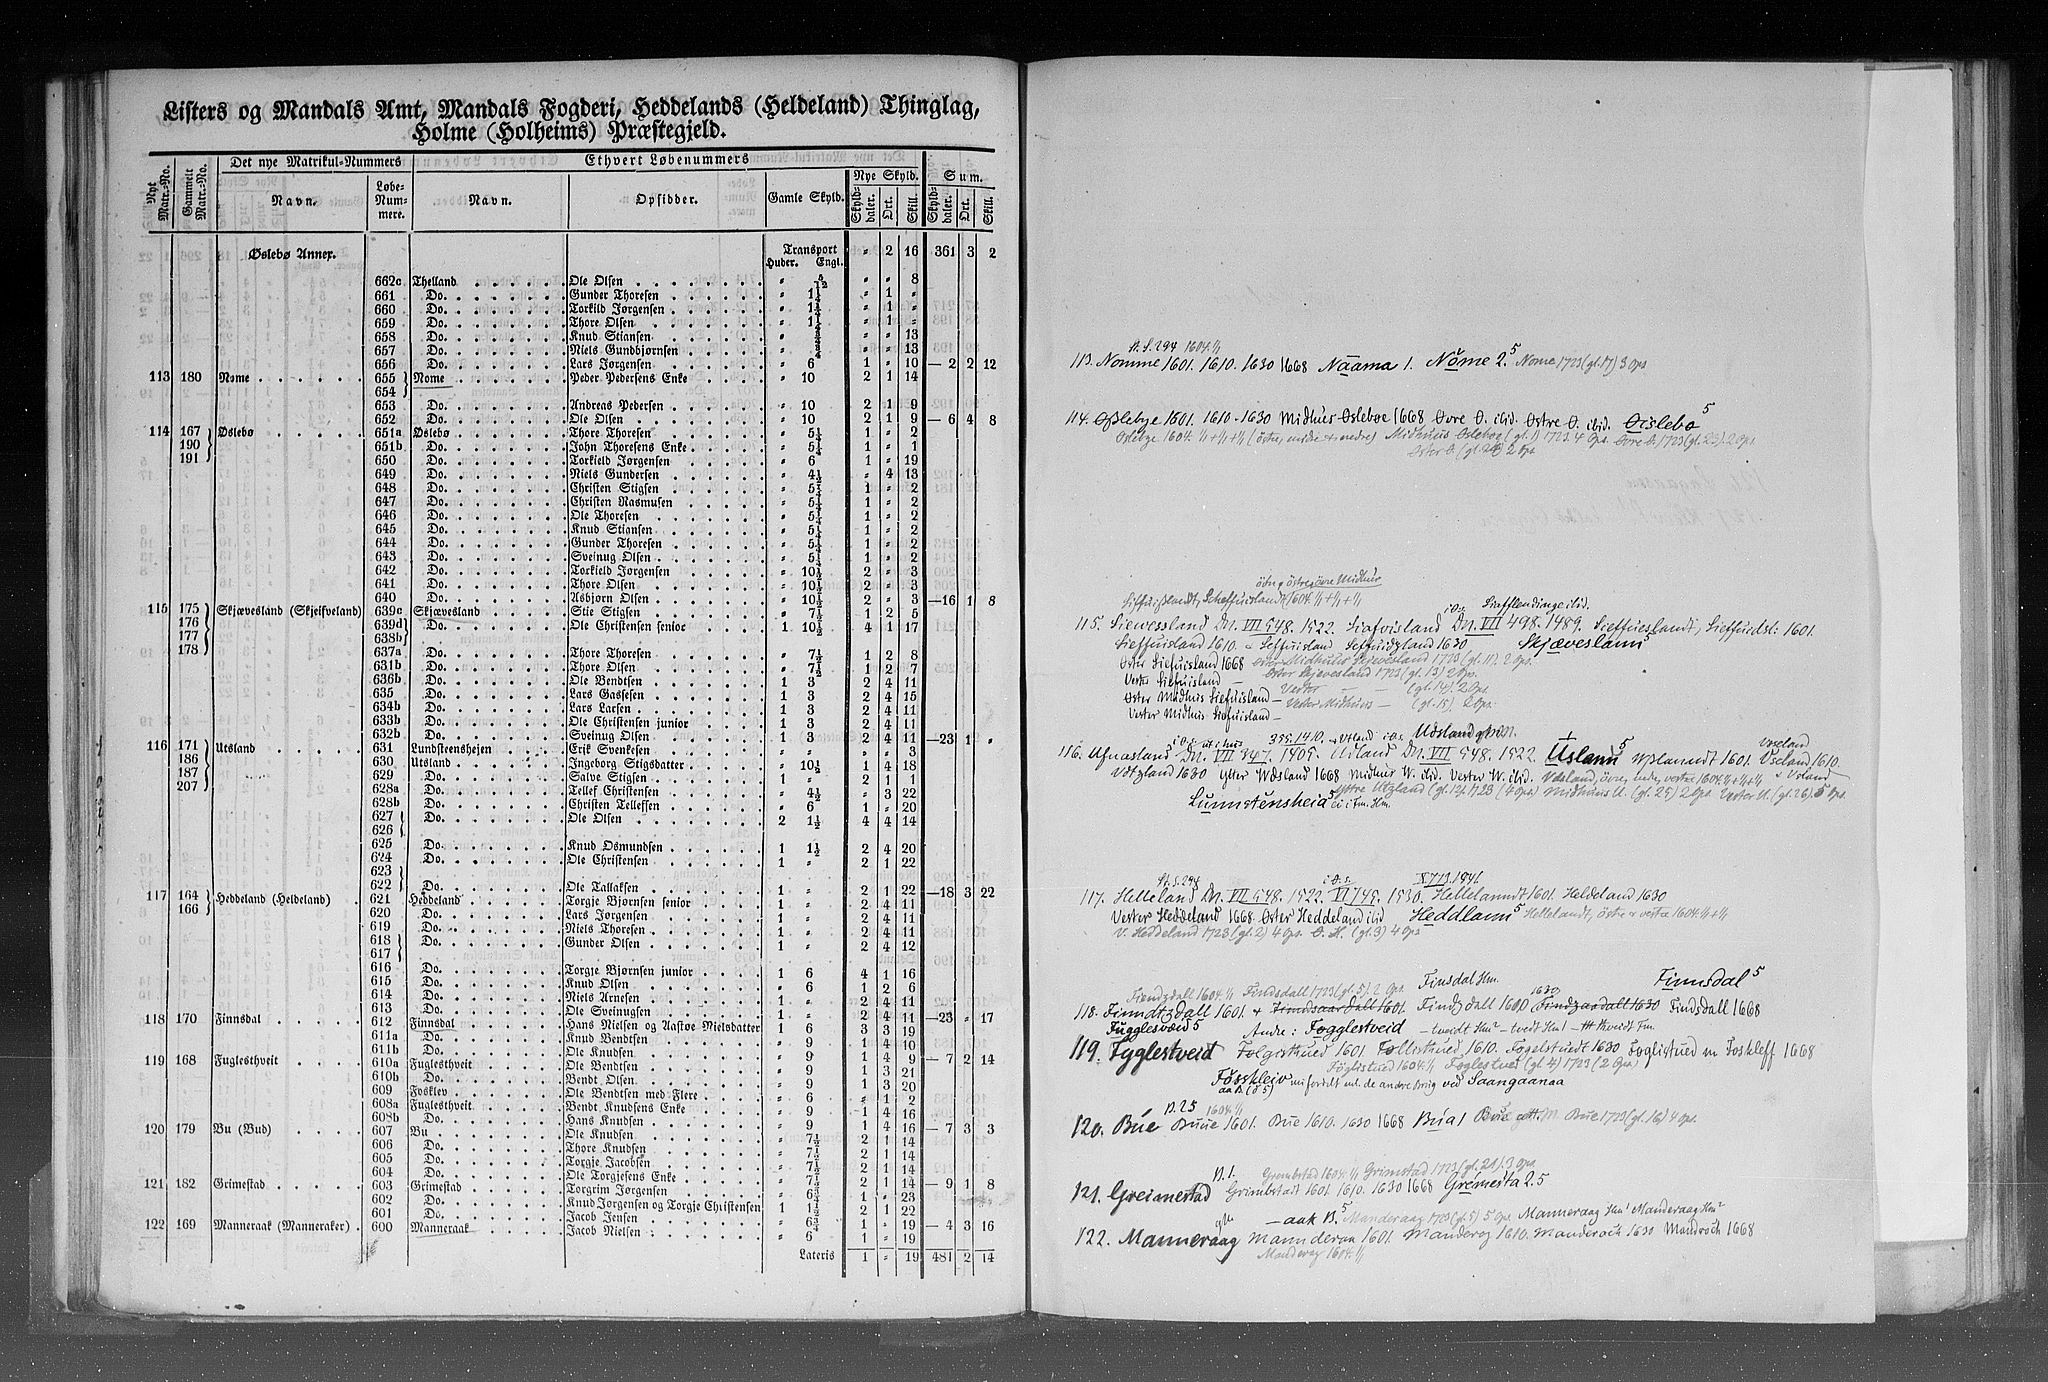 Listers og Mandals Amt, Mandals Fogderi, Heddelands (Heldeland) Thinglag,
Holme (Holheims) Præstegjeld.
Nyt Matr.-No. Gammelt Matr.-No. Det nye Matrikul-Nummers Ethvert Løbenummers
Navn. Løbe-Nummere. Navn. Opsidder. Gamle Skyld. Nye Skyld. Sum.
Skylddaler. Ort. Skill. Skylddaler. Ort. Skill.
Øslebø Annex. Transport " 2 16 361 3 2
Huder. Engl.
662c Thelland Ole Olsen " " " 8
661 Do. Gunder Thoresen " 1¼ " 1 "
660 Do. Torkild Jørgensen " 1¼ " 1 "
659 Do. Thore Olsen " 1¼ " 1 "
658 Do. Knud Stiansen " ¾ " " 13
657 Do. Niels Gundbjørnsen " ¾ " " 13
656 Do. Lars Jørgensen " 6 1 " 10 — 2 2 12
113 180 Nøme 655 Nøme Peder Pedersens Enke " 10 2 1 14
654
653 Do. Andreas Pedersen " 10 2 1 9
652 Do. Ole Olsen " 10 2 1 9 — 6 4 8
114 167 Øslebø 651a Øslebø Thore Thoresen " 5¼ 1 " 2
190 651b Do. John Thoresens Enke " 5¼ 1 " 1
191 650 Do. Torkield Jørgensen " 6 1 " 19
649 Do. Niels Gundersen " 4½ " 4 13
648 Do. Christen Stigsen " 5¼ 1 " 2
647 Do. Christen Rasmusen " 5¼ 1 " 2
646 Do. Ole Thoresen " 5¼ 1 " 2
645 Do. Knud Stiansen " 5¼ 1 " 2
644 Do. Gunder Thoresen " 5¼ 1 " 2
643 Do. Sveinug Olsen " 5¼ 1 " 2
642 Do. Torkield Jørgensen " 10½ 2 " 3
641 Do. Thore Olsen " 10½ 2 " 3
640 Do. Asbjørn Olsen " 10½ 2 " 3 —16 1 8
115 175 Skjævesland (Skjelfveland) 639c Skjævesland Stie Stigsen " 7½ 1 2 5
176 639d Do. Ole Christensen senior 1 10½ 4 1 17
177 638b
178 637a Do. Thore Thoresen " 7½ 1 2 8
631b Do. Thore Olsen " 7½ 1 2 7
636b Do. Ole Bendtsen 1 3 2 4 11
635 Do. Lars Gassesen 1 3 2 4 15
634b Do. Lars Larsen 1 3 2 4 11
633b Do. Ole Christensen junior 1 3 2 4 11
632b Do. Sveinug Olsen 1 3 2 4 11 —23 1 "
116 171 Utsland 631 Lundsteenshejen Erik Svenkesen " " " " 3
186 630 Utsland Ingeborg Stigsdatter " 10½ 1 4 18
187 629 Do. Salve Stigsen " " 1 " 1
207 628a Do. Tellef Christensen " 4½ " 3 22
628b Do. Christen Tellefsen " 6 1 " 20
627 Do. Ole Olsen 2 1½ 4 4 14
626
625 Do. Knud Osmundsen 1 1½ 2 4 20
624 Do. Ole Christensen 1 " 2 1 22
623
622 Do. Ole Tallaksen 1 " 2 1 22 —18 3 22
117 164 Heddeland (Heldeland) 621 Heddeland Torgje Bjørnsen senior 1 " 2 4 11
166 620 Do. Lars Jørgensen 1 " 2 4 11
619 Do. Niels Thoresen 1 " 2 4 11
618 Do. Gunder Olsen 1 " 2 4 12
617
616 Do. Torgje Bjørnsen junior 1 6 4 1 16
615 Do. Knud Olsen " 6 1 2 6
614 Do. Niels Arnesen 1 " 2 4 11
613 Do. Ole Sveinugsen 1 " 2 4 11 —23 " 17
118 170 Finnsdal 612 Finnsdal Hans Nielsen og Aastøe Nielsdatter 1 6 3 3 19
611a Do. Knud Bendtsen " 9 1 4 10
611b Do. Ole Knudsen " 9 1 4 9 — 7 2 14
119 168 Fuglesthveit 610a Fuglesthveit Ole Bendtsen " 9 1 3 21
610b Do. Bendt Olsen " 9 1 3 20
609 Fosklev Ole Bendtsen med Flere " 6 " 1 2
608a Fuglesthveit Bendt Knudsens Enke " 9 1 4 16
608b Do. Hans Knudsen " 9 1 4 16 — 7 3 3
120 179 Bu (Bud) 607 Bu Ole Knudsen " 7½ 2 1 14
606 Do. Thore Knudsen " 7½ 2 1 14
605 Do. Torgje Jacobsen " 7½ 2 1 14
604 Do. Ole Torgjesens Enke " 7½ 2 1 14 — 9 1 8
121 182 Grimestad 603 Grimestad Torgrim Jørgensen " 6¾ 1 " 23
602 Do. Knud Jørgensen og Torgje Christensen 1 1½ 2 1 22
601 Do. Jacob Jensen " 6¾ 1 " 19 — 4 3 16
122 169 Manneraak (Manneraker) 600 Manneraak Jacob Nielsen " 6 1 " 19
Lateris 1 " 19 481 2 14
St. S. 294 1604.1/1
113. Nomme 1601. 1610. 1630 1668 Nåama 1. Nöme 2.5 Nome 1723 (gl. 17) 3 Gps
114. Oßlebye 1601. 1610 - 1630 Midhus Oslebøe 1668 Øvre O. ibid. Østre O. ibid. Øislebø 5
Oslebye 1604. 1/1+1/1+1/1 (østre, midre & nedre) Midhuus Oslebøe (gl. 1) 1723 4 Gps. Øvre O. 1723 (gl. 23) 2 Gps
Øster O. (gl. 24) 2 Gps
115. Siewessland DN. VII 548. 1522. Siafvisland DN. VII 498. 1489. Sieffueslandt, Sieffuedsl: 1601.
Sieffuisland 1610. Seffuisland Seffuidzland 1630 Skjæveslann 5
Øster Siefuisland 1668 Midhuus Skjevesland 1723 (gl. 11). 2 Gps.
Vester Siefuisland — Øster Skjevesland 1723 (gl. 13) 2 Gps.
Øster Midhuis Siefuisland — Vester — — (gl. 14). 2 Gps
Vester Midhuis Siefuisland — Vester Midhuus — (gl. 15). 2 Gps.
116. Ufnasland DN. VII 347. 1405. Udland DN. VII 548. 1522. Üslann 5 1601. Useland 1610.
Udtzland 1630 Ytter Wdsland 1668 Midhus W. ibid. Vester W. ibid.
Ytre Utzland (gl. 12). 1723 (4 Gps) Midhuus U. (gl. 25) 2 Gps Vester U. (gl. 26). 5 Gps.
Lunnstensheia 5 ei i Fm. Hm.
St. S. 294
117. Helleland DN. VII 548. 1522. VI 745. 1530. Hellelanndt 1601. Heldeland 1630
Vester Heddeland 1668 Øster Heddeland ibid Heddlann 5 Hellelandt, østre & vestre 1604. 1/1+1/1
V. Heddeland 1723 (gl. 2) 4 Gps. Ø. H. (gl. 3) 4 Gps
Fiendzdall 1604. 1/1 Findsdall 1723 (gl. 5). 2 Gps Finsdal Hm. Finnsdal 5
118. Finndtzdall 1601. Findzdall 1610 Findzaardallt 1630 Findsdall 1668
Fugglesvæid 5 Andre: Fogglestveid — tveidt Hm² — tvedt Hm¹ — thveidt Fm.
119. Fyglestveid Folgisthued 1601. Follisthued 1610. Fogelstuedt 1630 Foglistued m Foskleff 1668
Föglistued 1604. 1/1 Foglestved (gl. 4) 1723 (2 Gps)
Fösskleiv ved Saangaanaa
B. 25 1604. 1/1
120. Búe Buue 1601. Bue 1610. 1630 1668 Búa 1 Bue 1723 (gl. 16) 4 Gps.
B. 1. Grimbstad 1604. 1/1 Grimstad 1723 (gl. 21). 3 Gps
121. Greimestad Grimbstadt 1601. 1610. 1630 1668 Grémesta 2.5
— aak B. 5 Manderaag 1723 (gl. 9) 5 Gps Manneraag Hm¹ Manderaag Hm²
122. Manneraag Manderaa 1601. Manderog 1610. Manderoch 1630 Mandroch 1668
Manderog 1604. 1/1